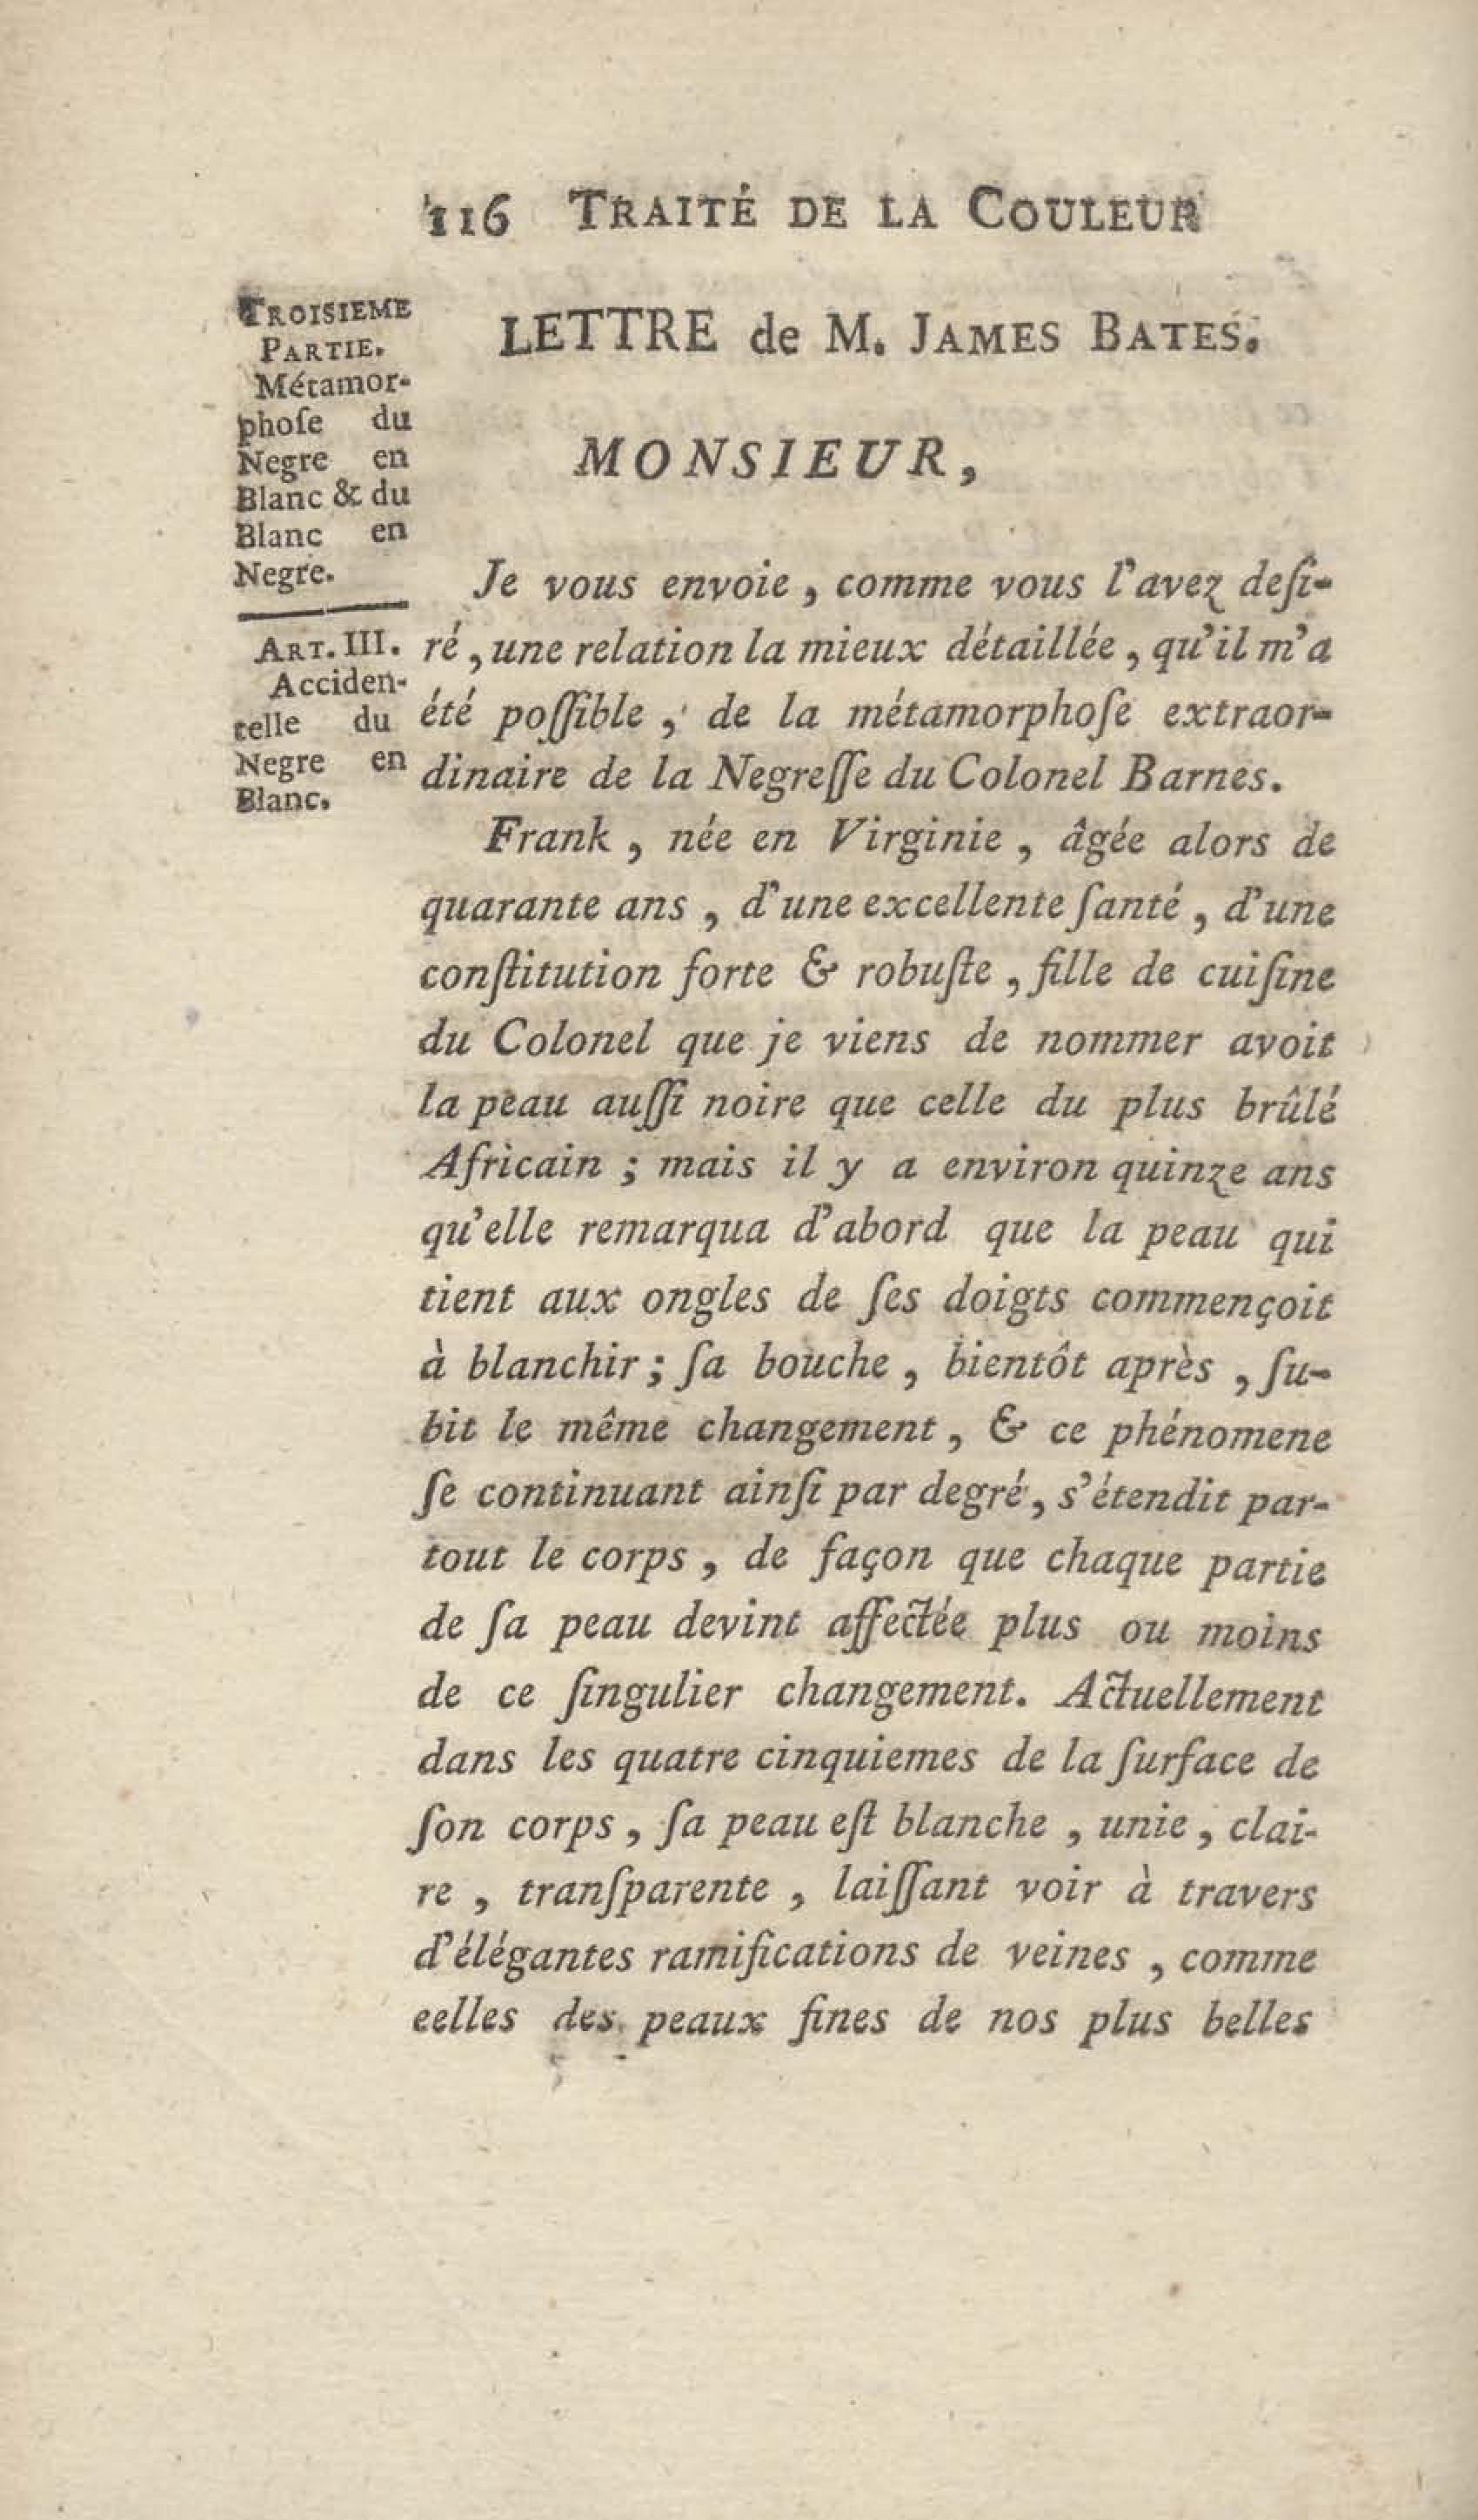 116 TRAITÉ DE LA COULEUR
TROISIEME
PARTIE.
Métamor-
phoſe du
Negre en
Blanc & du
Blanc en
Negre.
ART. III.
Acciden-
telle du
Negre en
Blanc.
LETTRE de M. JAMES BATES.
MONSIEUR,
Je vous envoie, comme vous l'avez deſi-
ré, une relation la mieux détaillée, qu'il m'a
été poſſible, de la métamorphoſe extraor-
dinaire de la Negreſſe du Colonel Barnes.
Frank, née en Virginie, âgée alors de
quarante ans, d'une excellente ſanté, d'une
conſtitution forte & robuſte, fille de cuiſine
du Colonel que je viens de nommer avoit
la peau auſſi noire que celle du plus brûlé
Africain; mais il y a environ quinze ans
qu'elle remarqua d'abord que la peau qui
tient aux ongles de ſes doigts commençoit
à blanchir; ſa bouche, bientôt après, ſu-
bit le même changement, & ce phénomene
ſe continuant ainſi par degré, s'étendit par-
tout le corps, de façon que chaque partie
de ſa peau devint affectée plus ou moins
de ce ſingulier changement. Actuellement
dans les quatre cinquiemes de la ſurface de
ſon corps, ſa peau eſt blanche, unie, clai-
re, tranſparente, laiſſant voir à travers
d'élégantes ramifications de veines, comme
celles des peaux fines de nos plus belles